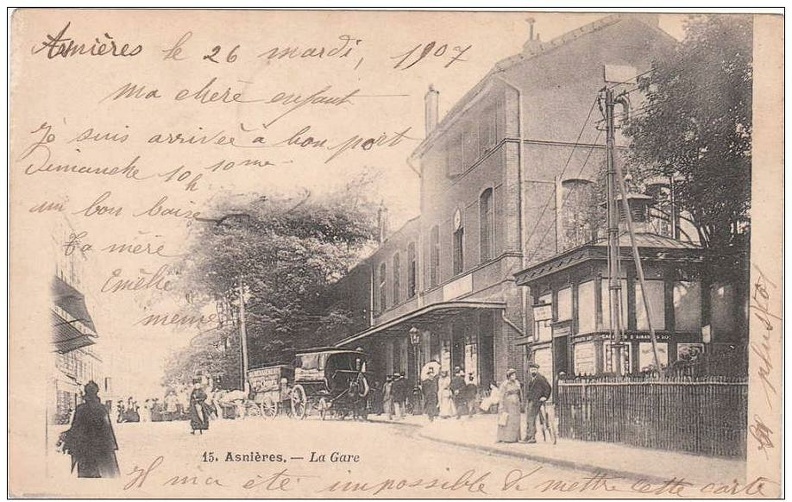 Asnières le 26 mardi, 1907
ma chère enfant
Je suis arriveé à bon port
Dimanche 10h 10me
un bon baise
Ta mère
Emélie
meme
15. Asnières. — La Gare
Il m'a été impossible de mettre cette carte
plus tot